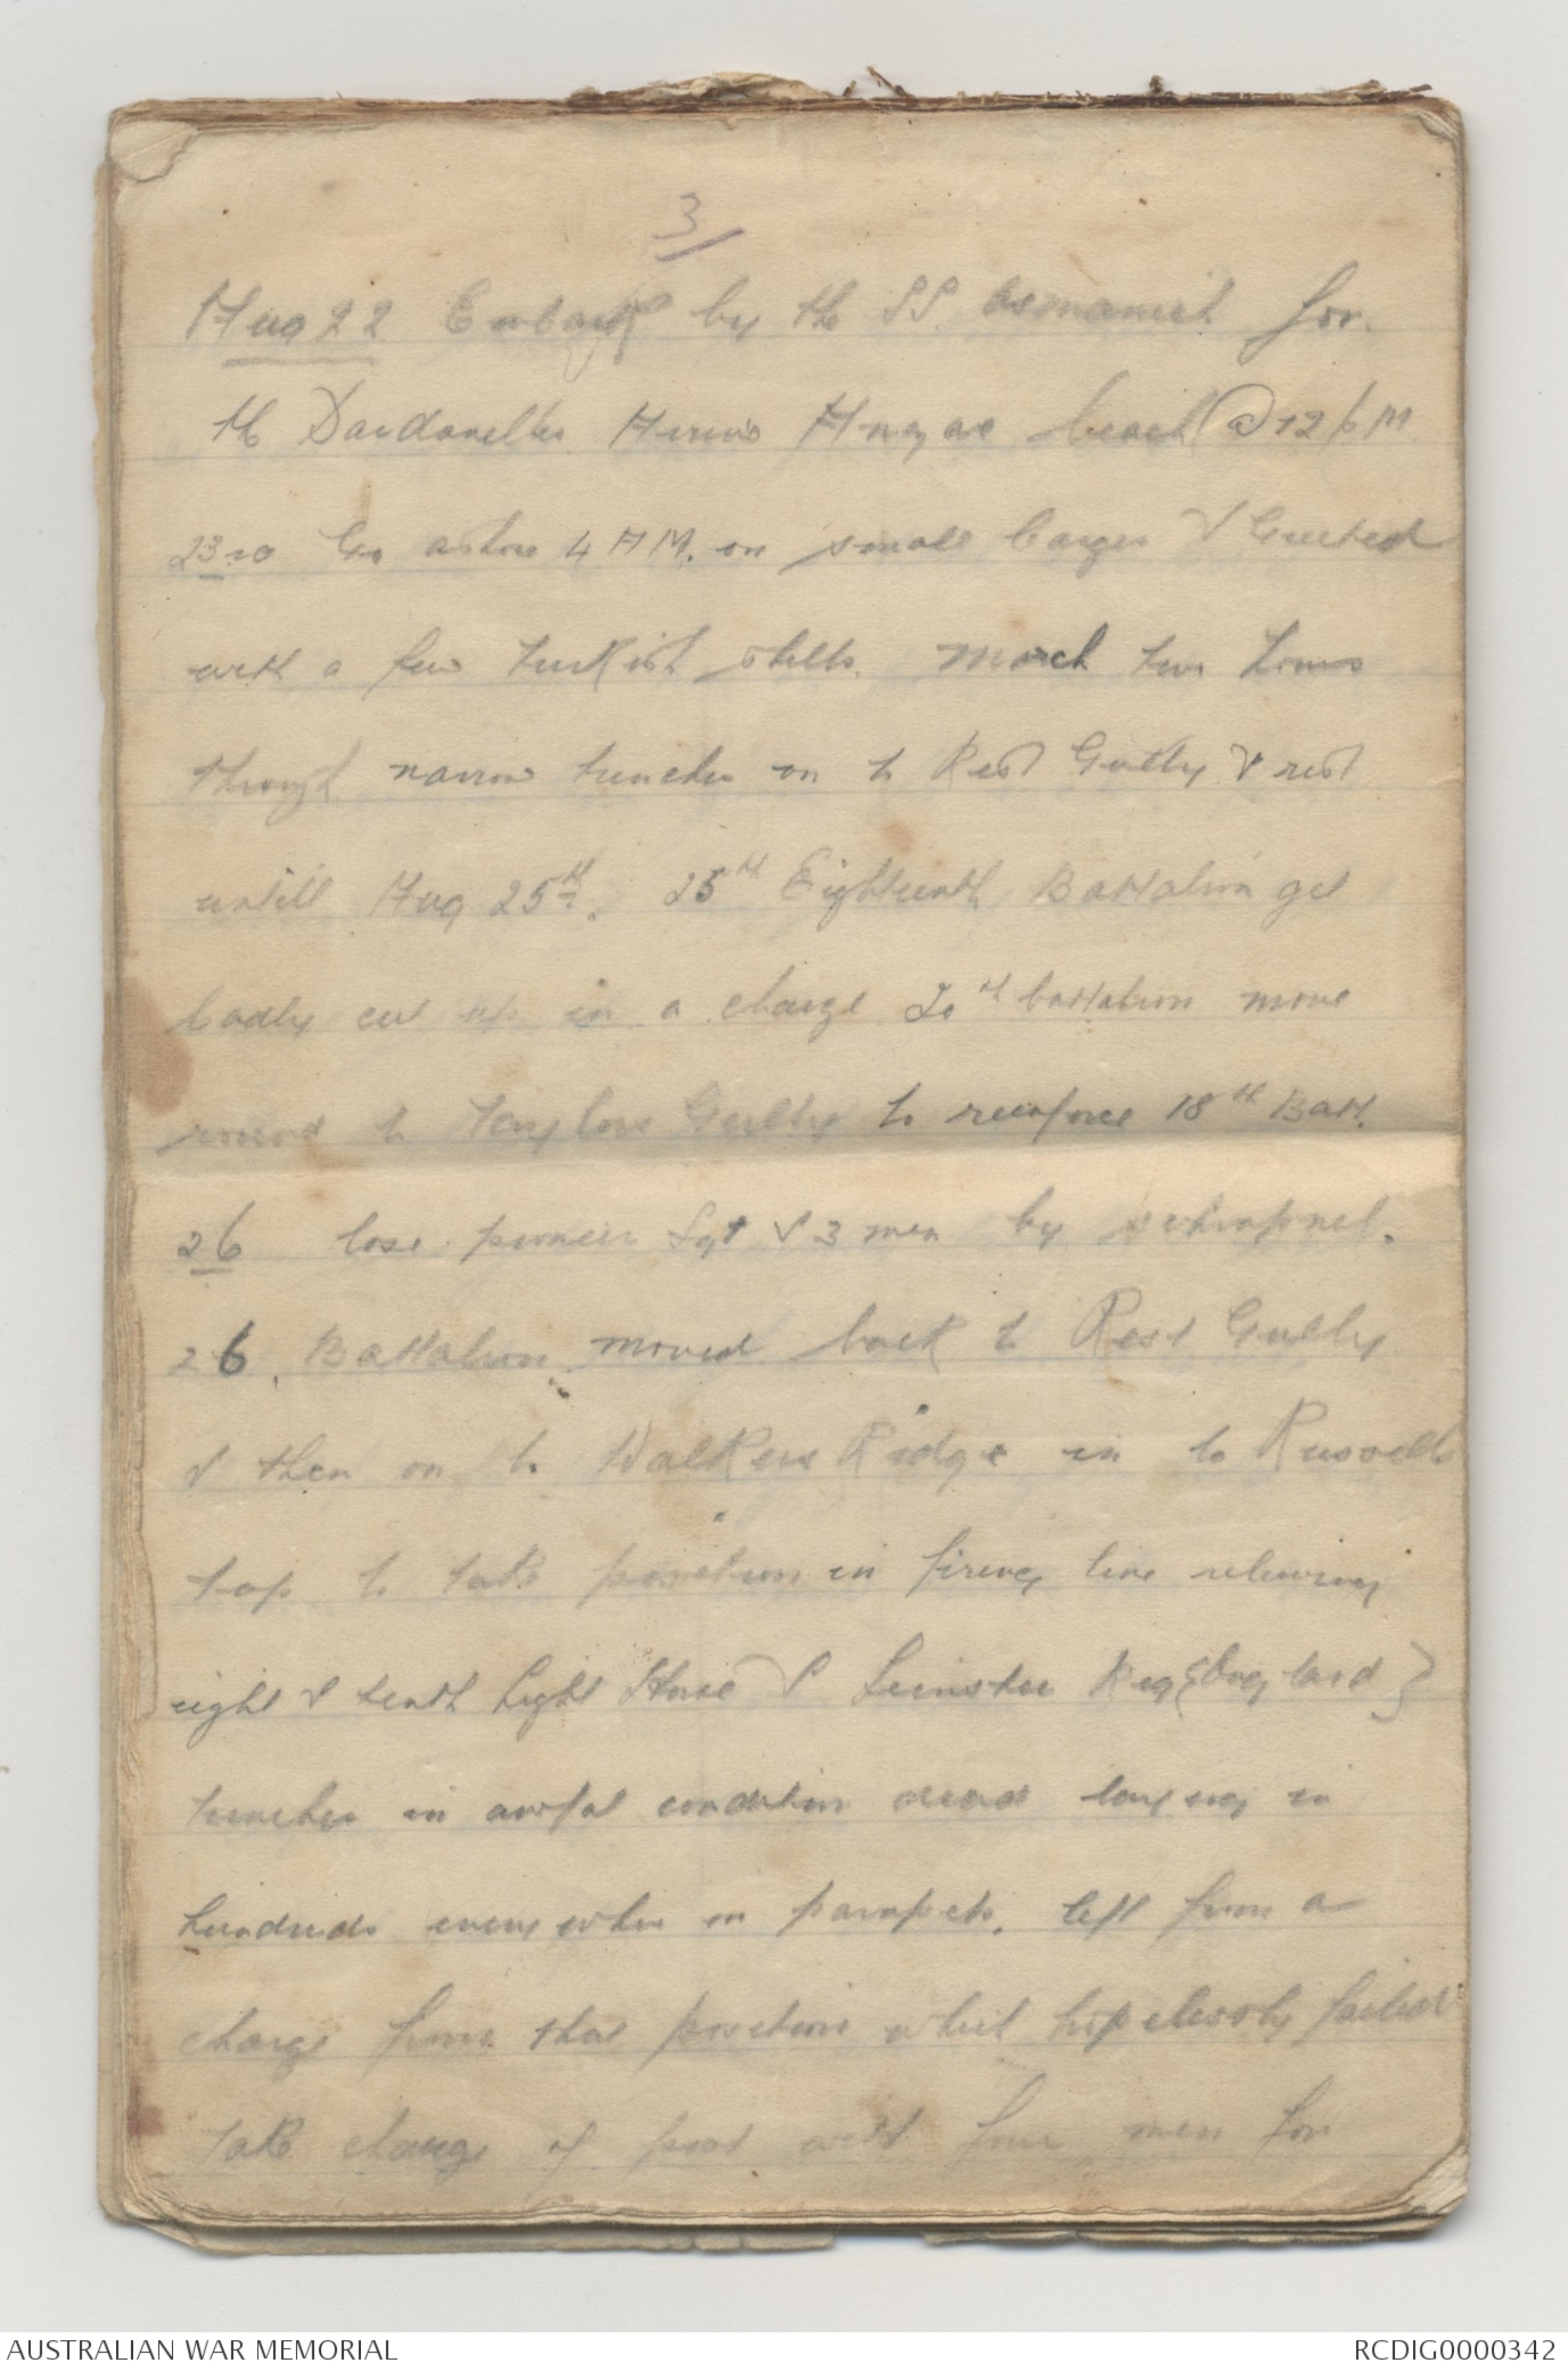 3/
Aug 22 Embark by the SS. Osmanieh for.
the Dardanelles Arrive Anzac beach @ 12 PM
23rd Go ashore 4 AM. on small barges & Greeted
with a few turkish shells. March two hours
through narrow trenches on to Rest Gully & rest
untill Aug 25th. 25th Eighteenth Battalion get
badly cut up in a charge 20th battalion move
round to Taylors Gully to reinforce 18th Batt.
26 lose pioneer Sgt & 3 men by schrapnel.
26. Battalion moved back to Rest Gully
& then on to Walkers Ridge in to Russells
top to take position in firing line relieving
eight & tenth Light Horse & Leinster Reg {England}
trenches in awful condition dead laying in
hundreds everywhere on parapets. left from a
charge from that position which hopelessly failed
take charge of post with four men for